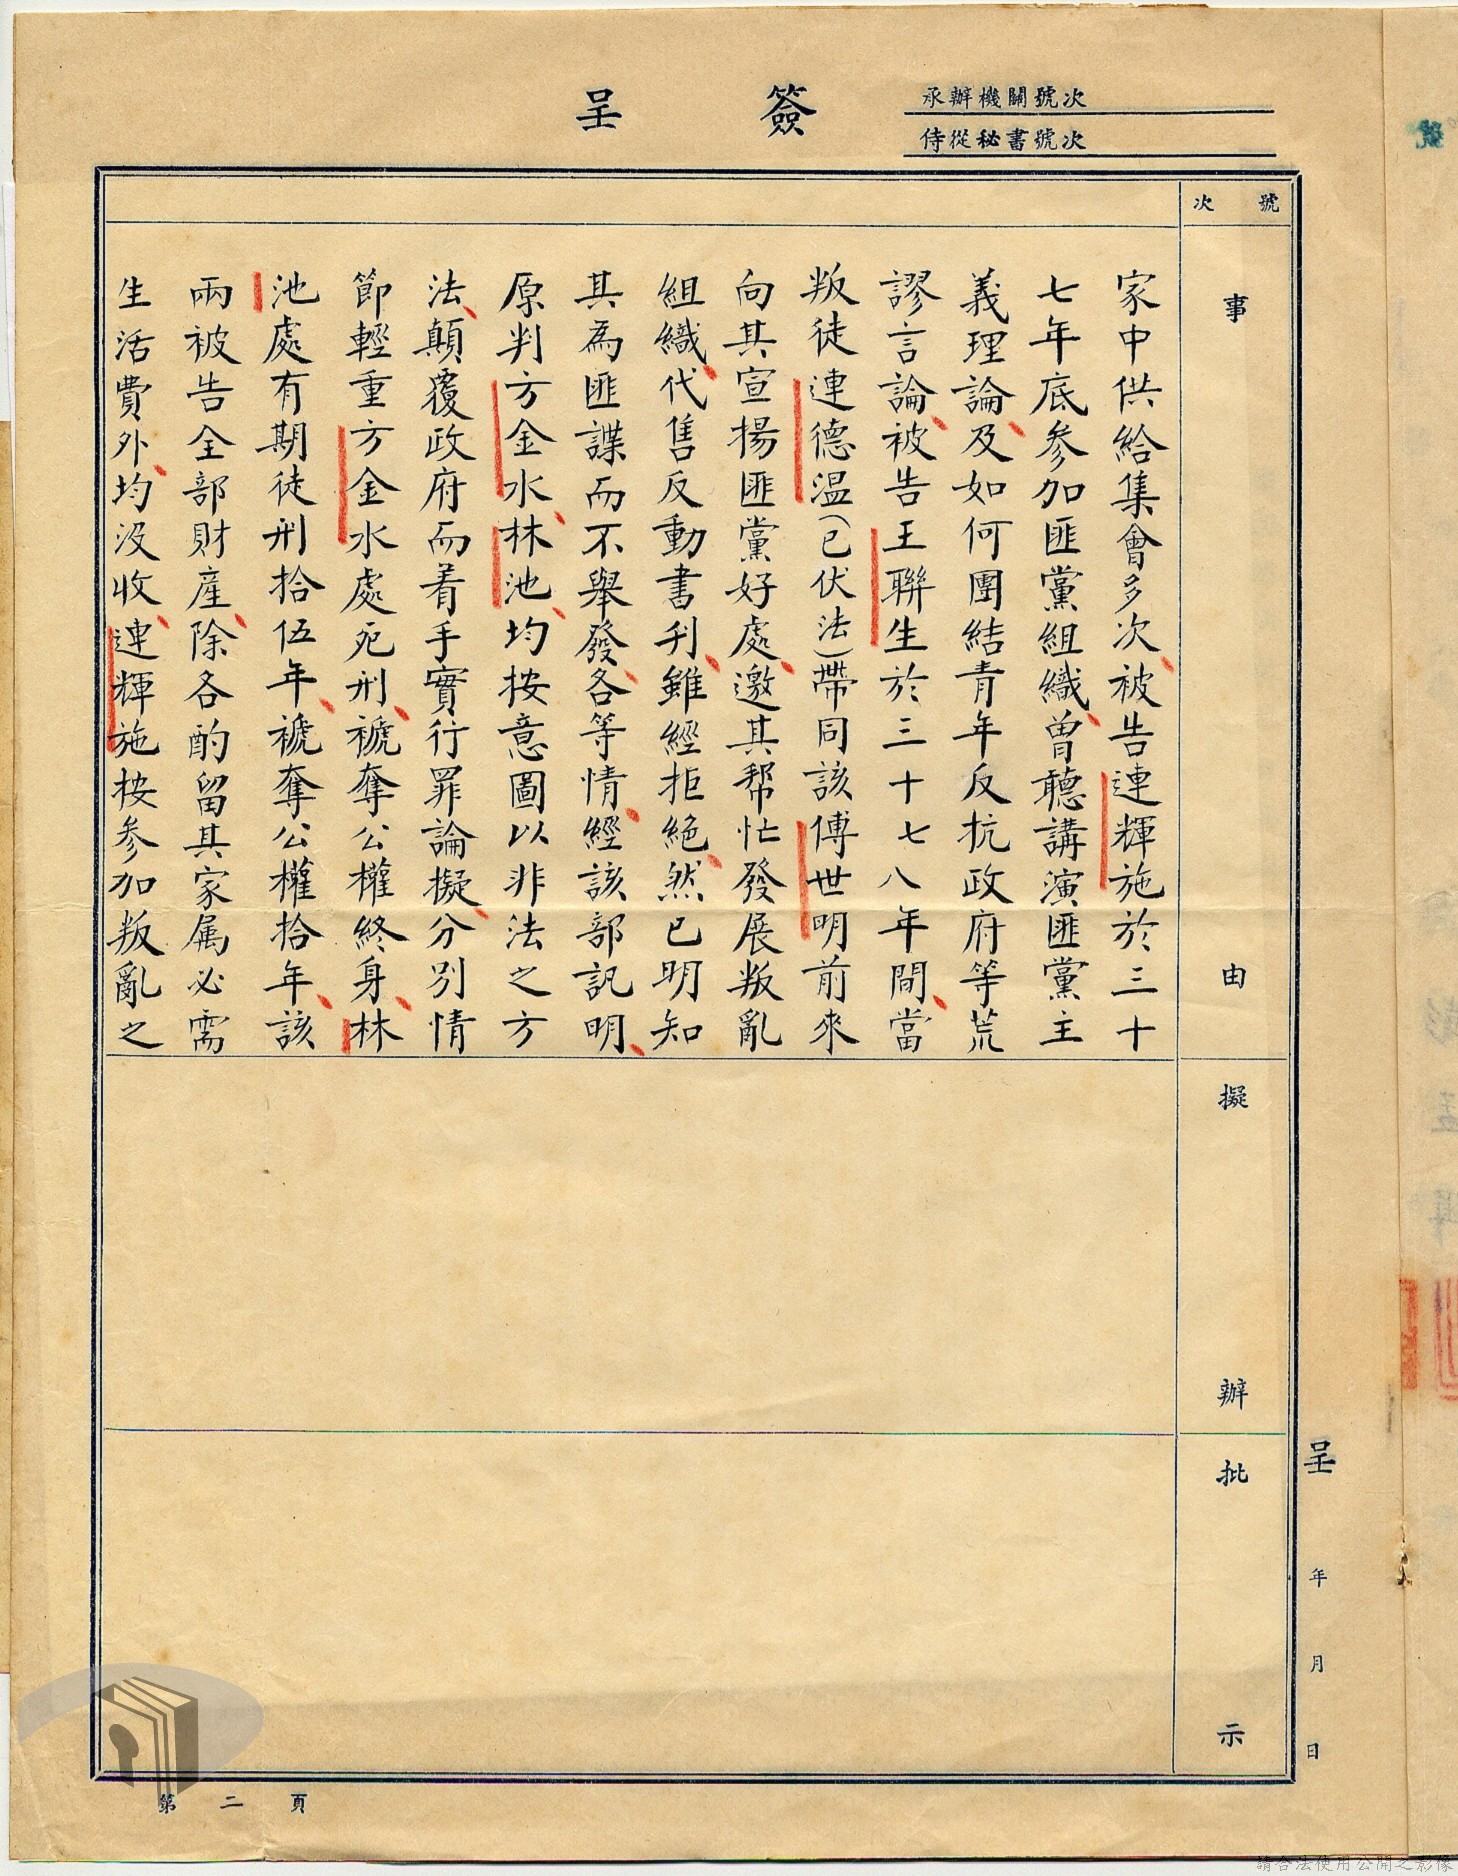 簽呈
承辦機關號次
侍從秘書號次
號次
事由
家中供給集會多次、被告連輝施於三十
七年底參加匪黨組織、曾聽講演匪黨主
義理論、及如何團結青年反抗政府等荒
謬言論、被告王聯生於三十七八年間、當
叛徒連德温(已伏法)帶同該傅世明前來
向其宣揚匪黨好處、邀其幫忙發展叛亂
組織、代售反動書刋、雖經拒絶、然已明知
其為匪諜而不舉發、各等情、經該部訊明、
原判方金水、林池、均按意圖以非法之方
法、顛覆政府而着手實行罪論擬、分別情
節輕重方金水處死刑、褫奪公權終身、林
池處有期徒刑拾伍年、褫奪公權拾年、該
兩被告全部財產、除各酌留其家属必需
生活費外、均沒收、連輝施按參加叛亂之
擬辦
批示
呈
年月日
第二頁
請合法使用公開之影像